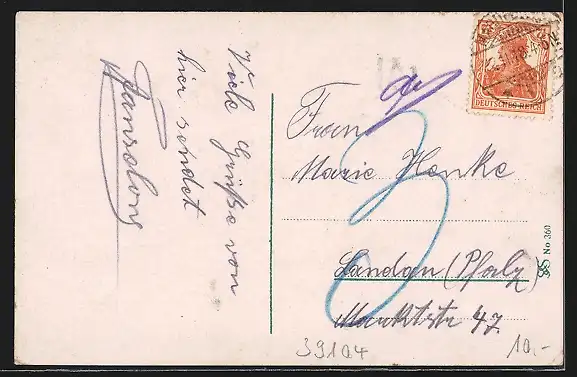 Viele Grüße von
hier sendet
Frau
Marie Henke
Landau (Pfalz)
Marktstr 47.
DEUTSCHES REICH
No 360
3
39104
10,-